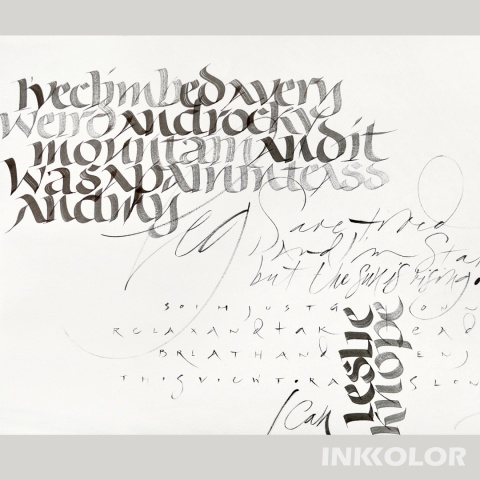 I'veclimbedavery
weirdandrocky
mountainandit
wasapainintheass
andmy
legs are tired
and I'm sta
but the sun is rising.
SOIMJUSTG ONN
RELAXANDTAK EAD
BREATHAND ENJ
SLON
I can
Leslie
Knope
INKKOLOR